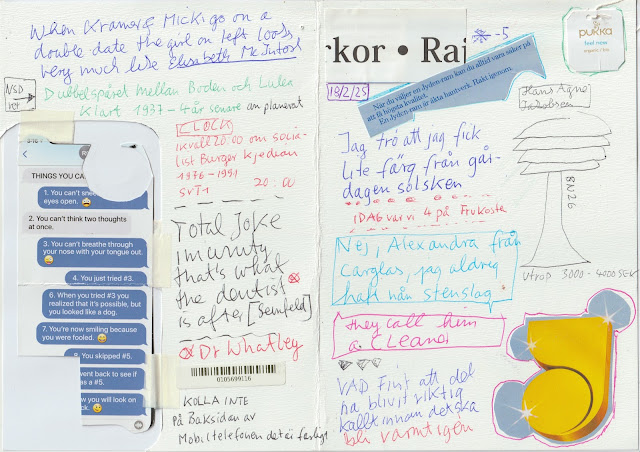 When Kramer & Micki go on a
double date the girl on left looks
very much like Elisabeth McIntosh
NSD
Dubbelspåret mellan Boden och Luleå
Klart 1937 - 4 år senare än planerat
KLOCK
ikväll 20.00 om socia-
list Burger Kjedjan
1976-1991
SVT1 20:00
THINGS YOU CA
1. You can't
eyes open.
2. You can't think two thoughts
at once.
3. You can't breathe through
your nose with your tongue out.
4. You just tried #3.
6. When you tried #3 you
realized that it's possible, but
you looked like a dog.
7. You're now smiling because
you were fooled.
8. You skipped #5.
went back to see if
as a #5.
w you will look on
ck.
Total Joke
imunity
that's what
the dentist
is after [Seinfeld]
Dr Whatley
0105699116
KOLLA INTE
på Baksidan av
Mobiltelefonen det är farligt
rkor • Raj
-5
18/2/25
När du väljer en Jyden-ram kan du alltid vara säker på
att få högsta kvalitet.
En Jyden-ram är äkta hantverk. Rakt igenom.
pukka
feel new
Hans Agne
Jakobsson
Jag tró att jag fick
lite färg från går-
dagen solsken
IDAG var vi 4 på Frukoste
Nej, Alexandra från
Carglas, jag aldrig
haft nån stenslag
utrop 3000-4000 SEK
they call him
a. CLeand
VAD Fint att det
ha blivit riktig
kallt innan det ska
bli varmt igen